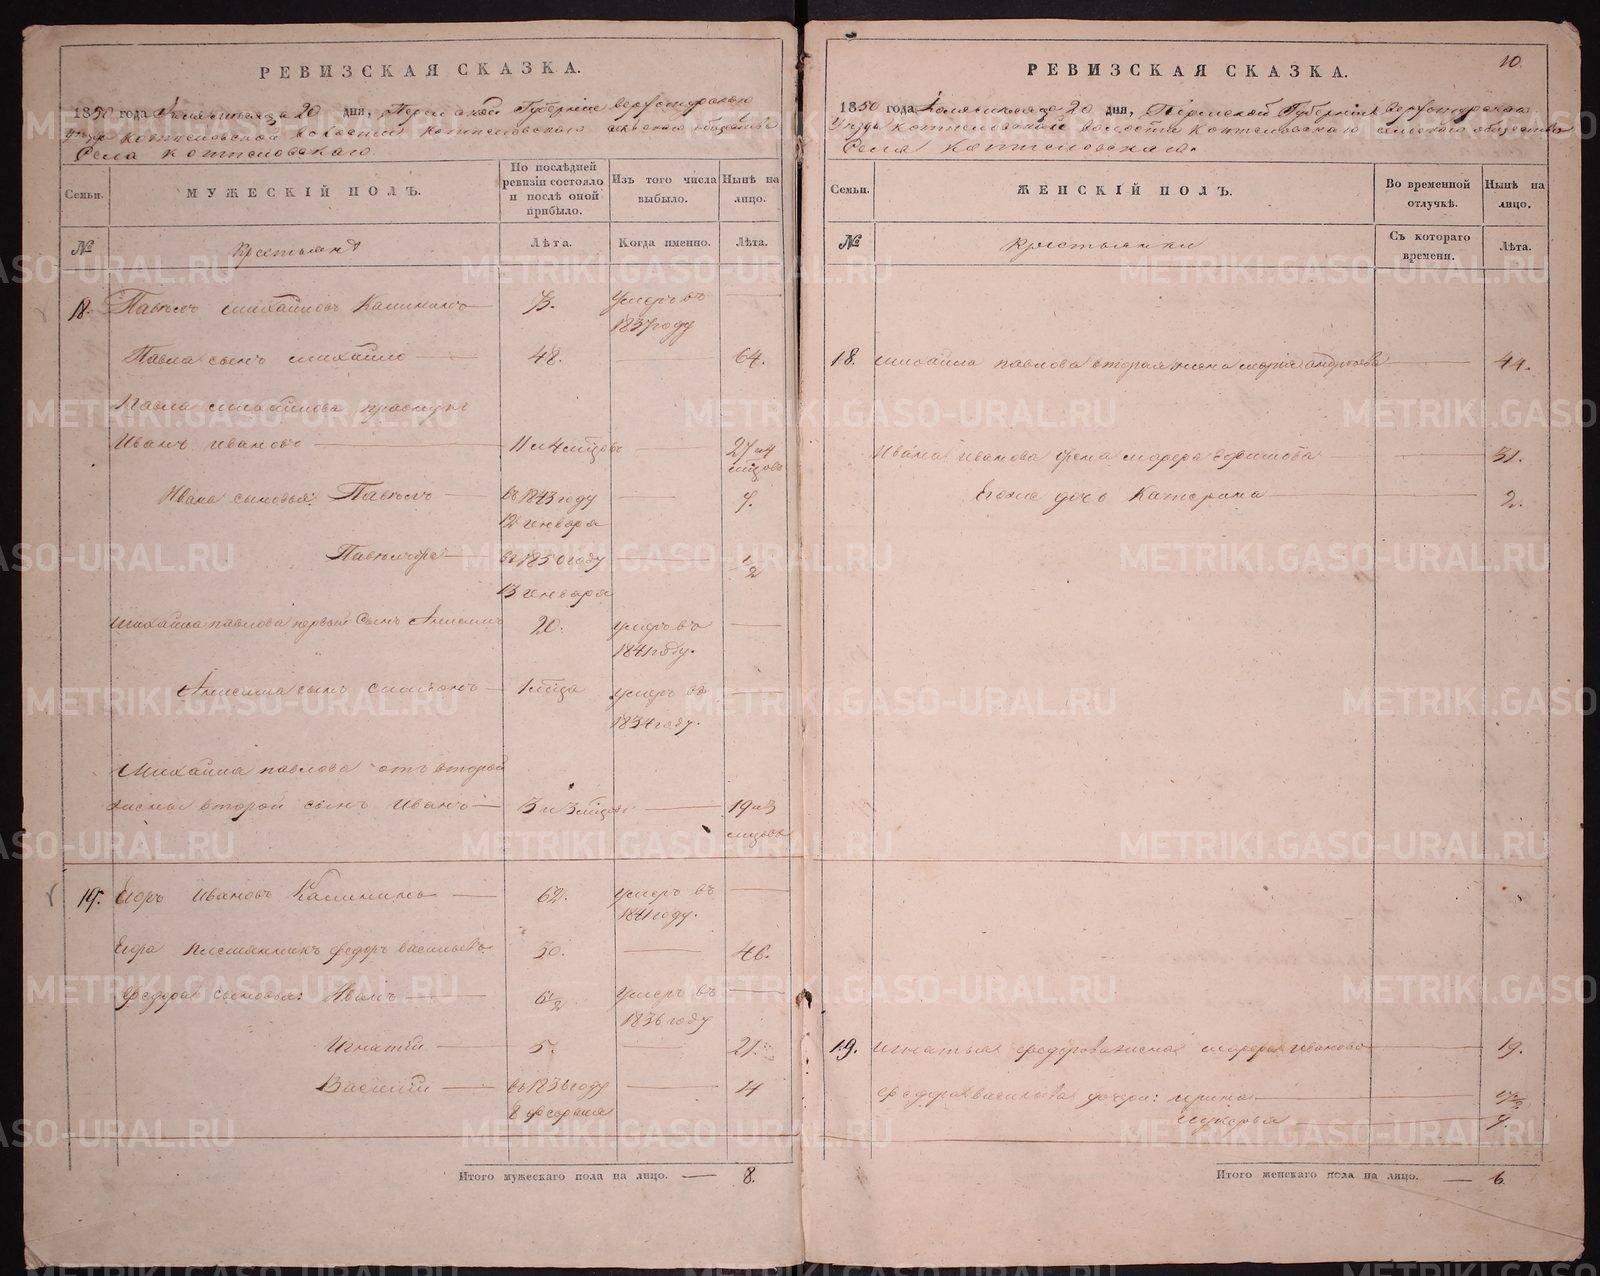 РЕВИЗСКАЯ СКАЗКА.
1850 года 20 дня, Пермской Губернiи Верхотурскаго
уезда Коптеловской волости Коптеловскаго сельскаго общества
Села Коптеловскаго
Семьи.
МУЖЕСКIЙ ПОЛЪ.
По послѣдней ревизiи состояло и послѣ оной прибыло.
Изъ того числа выбыло.
Нынѣ на лицо.
№
Крестьяне
Лѣта.
Когда именно.
Лѣта.
18. Павелъ Михайловъ Калининъ 73. Умеръ въ
1837 году
Павла сынъ Михайло 48. 64.
Павла Михайлова правнукъ
Иванъ Ивановъ 11 и 4 мѣсцовъ 27 и 4
мѣсцовъ
Ивана сыновья: Павелъ въ 1843 году 7.
12 генваря
въ 1850 году 1/2
13 генваря
Михайла Павлова первый сынъ Анисимъ 20. умеръ въ
1841 году.
Анисима сынъ 1 мѣсца умеръ въ
1834 году.
Михайла Павлова отъ второй
жены второй сынъ Иванъ 3 и 3 мѣсцовъ 19 и 3
мѣсцовъ
19. Егоръ Ивановъ Калининъ 62. умеръ въ
1841 году.
Егора племянникъ Федоръ Васильевъ 30. 46.
Федора сыновья: Иванъ 6 1/2 Умеръ въ
1836 году
Игнатiй 5. 21.
Василiй въ 1836 году 14
8 февраля
Итого мужескаго пола на лицо. — 8.
10
РЕВИЗСКАЯ СКАЗКА.
1850 года 20 дня, Пермской Губернiи Верхотурскаго
Уезда Коптеловской волости Коптеловскаго сельскаго общества
Села Коптеловскаго.
Семьи.
ЖЕНСКIЙ ПОЛЪ.
Во временной отлучкѣ.
Нынѣ на лицо.
№
Крестьянки
Съ котораго времени.
Лѣта.
18. Михайла Павлова вторая жена Марья Андреева 44.
Ивана Иванова жена Марфа Ефимова 31.
Егоже дочь Катерина 2.
19. Игнатья Федорова жена Марфа Иванова 19.
Федора Васильева дочери: Ирина
Лукерья 7.
Итого женскаго пола на лицо. — 6.
METRIKI.GASO-URAL.RU